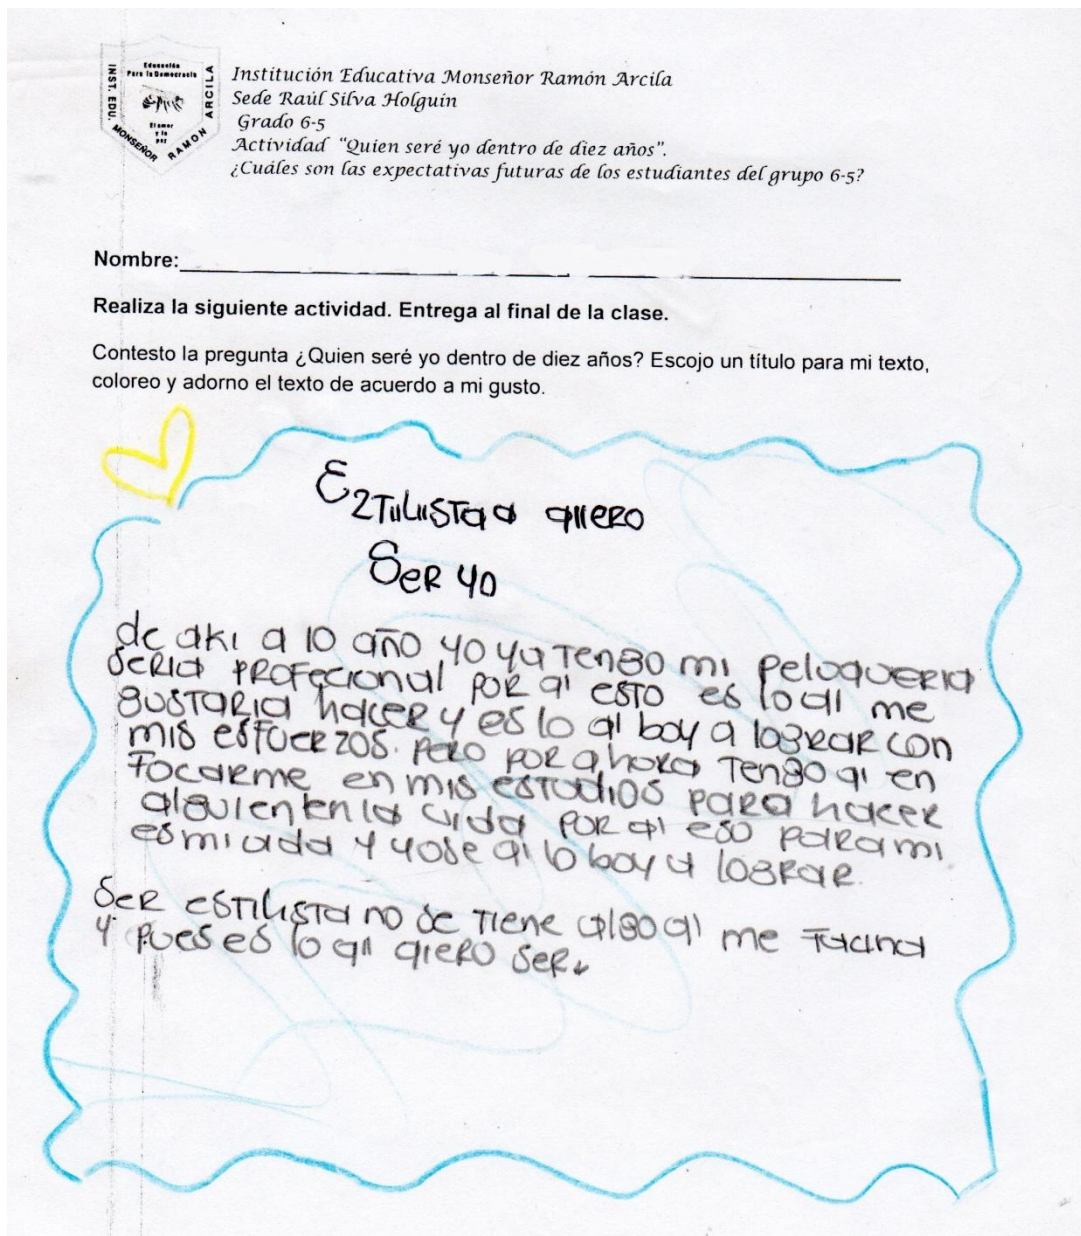 Educación
Para la Democracia
El amor
y la
paz
INST. EDU. MONSEÑOR RAMON ARCILA
Institución Educativa Monseñor Ramón Arcila
Sede Raúl Silva Holguin
Grado 6-5
Actividad "Quien seré yo dentro de diez años".
¿Cuáles son las expectativas futuras de los estudiantes del grupo 6-5?
Nombre:
Realiza la siguiente actividad. Entrega al final de la clase.
Contesto la pregunta ¿Quien seré yo dentro de diez años? Escojo un título para mi texto,
coloreo y adorno el texto de acuerdo a mi gusto.
Eztilista qiero
Ser yo
de aki a 10 año yo ya tengo mi peloqueria
seria profecional por qi esto es lo qi me
gustaria hacer y es lo qi boy a lograr con
mis esfuerzos. pero por ahora tengo qi en
focarme en mis estudios para hacer
alguien en la vida por qi eso para mi
es mi vida y yo se qi lo boy a lograr.
Ser estilista no se tiene algo qi me
y pues es lo qi qiero ser.